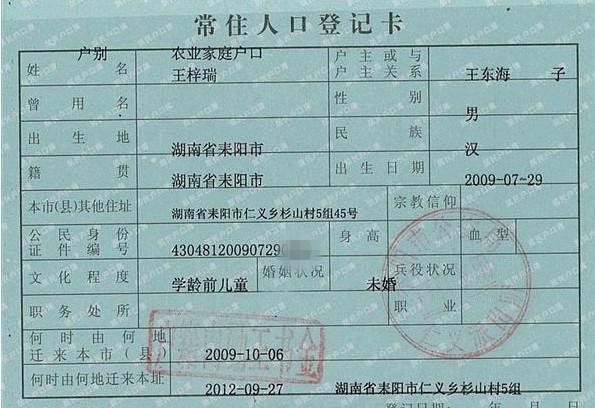 常住人口登记卡
户别 农业家庭户口 户主或与
姓名 王梓瑞 户主关系 王东海 子
曾用名 性别 男
出生地 湖南省耒阳市 民族 汉
籍贯 湖南省耒阳市 出生日期 2009-07-29
本市(县)其他住址 湖南省耒阳市仁义乡杉山村5组45号 宗教信仰
公民身份 身高 血型
证件编号 43048120090729
文化程度 学龄前儿童 婚姻状况 未婚 兵役状况
职务处所 职业
何时由何地
迁来本市(县) 2009-10-06
何时由何地迁来本址 2012-09-27 湖南省耒阳市仁义乡杉山村5组
登记日期: 年 月 日